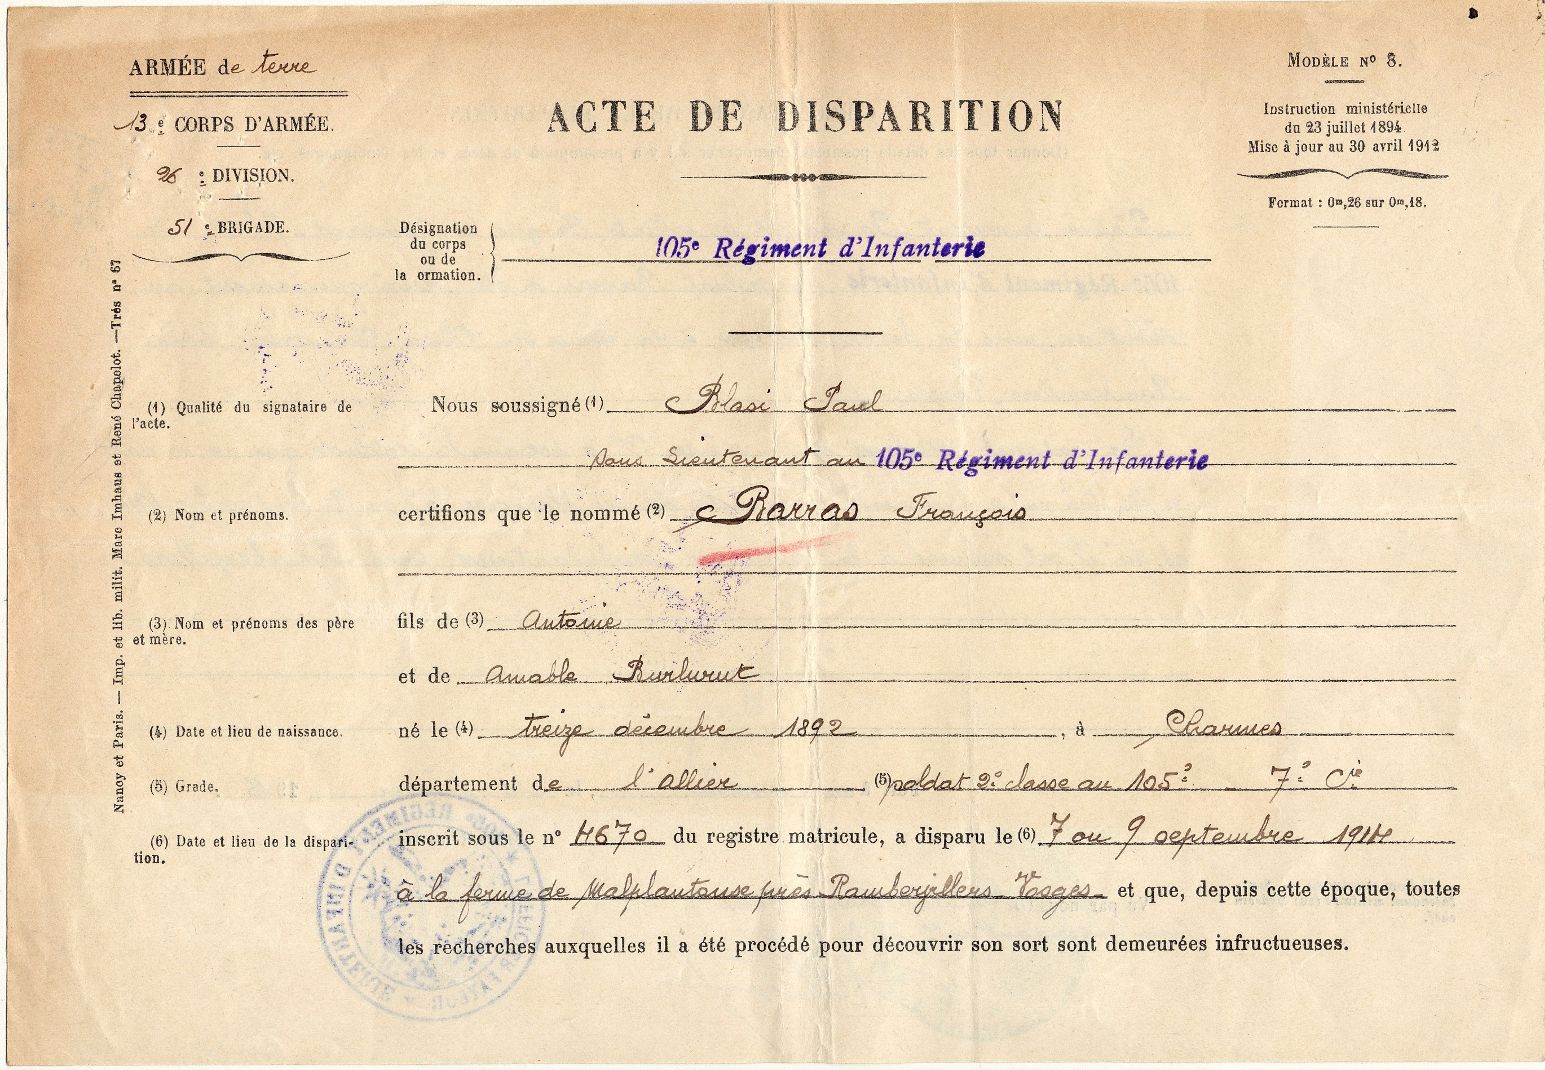 ARMÉE de terre
13e CORPS D'ARMÉE.
26e DIVISION.
51e BRIGADE.
ACTE DE DISPARITION
MODÈLE No 8.
Instruction ministérielle
du 23 juillet 1894
Mise à jour au 30 avril 1912
Format : 0m,26 sur 0m,18.
Désignation
du corps
ou de
la ormation.
105e Régiment d'Infanterie
Nancy et Paris. — Imp. et lib. milit. Marc Imhaus et René Chapelot. —Trés no 67
(1) Qualité du signataire de
l'acte.
Nous soussigné (1) Blasi Paul
sous Lieutenant au 105e Régiment d'Infanterie
(2) Nom et prénoms.
certifions que le nommé (2) Barras François
(3) Nom et prénoms des père
et mère.
fils de (3) Antoine
et de Amable Burlurut
(4) Date et lieu de naissance.
né le (4) treize décembre 1892, à Charmes
(5) Grade.
département de l'Allier (5) soldat 2e classe au 105e 7e Cie
(6) Date et lieu de la dispari-
tion.
inscrit sous le no 4670 du registre matricule, a disparu le (6) 7 ou 9 septembre 1914
à la ferme de Malplantouse près Ramberjillers Vosges et que, depuis cette époque, toutes
les recherches auxquelles il a été procédé pour découvrir son sort sont demeurées infructueuses.